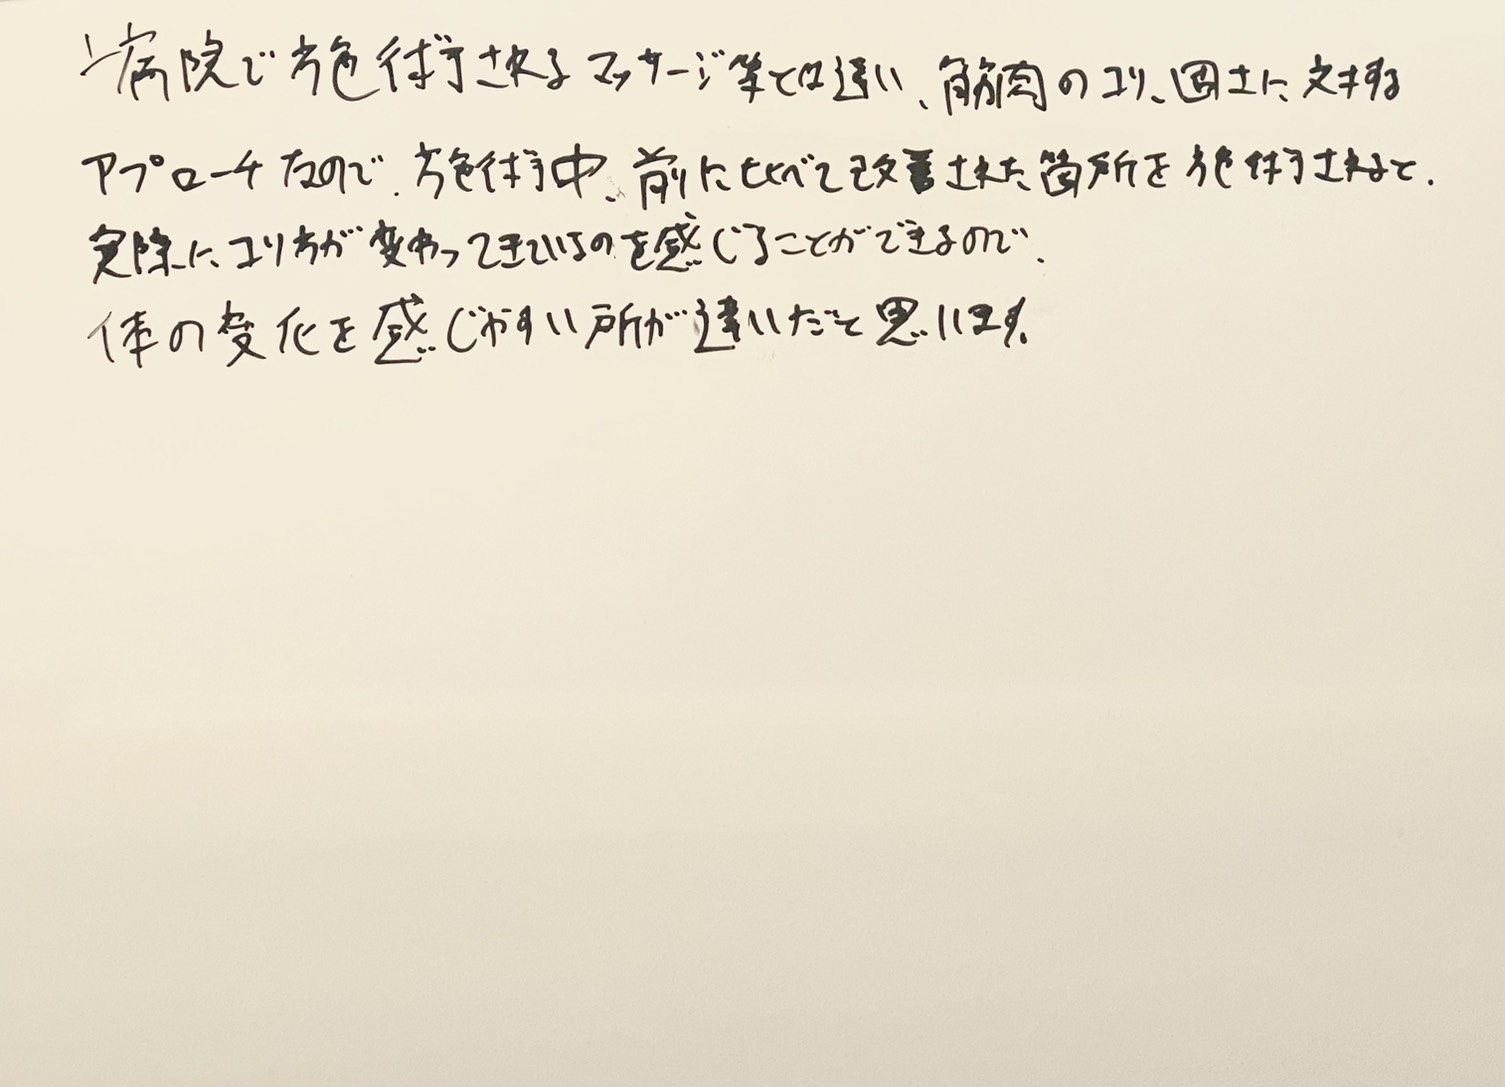 病院で施術されるマッサージ等とは違い、筋肉のコリ、固さに対する
アプローチなので、施術中、前にくらべて改善された箇所を施術されると、
実際にコリ方が変わってきているのを感じることができるので、
体の変化を感じやすい所が違いだと思います。